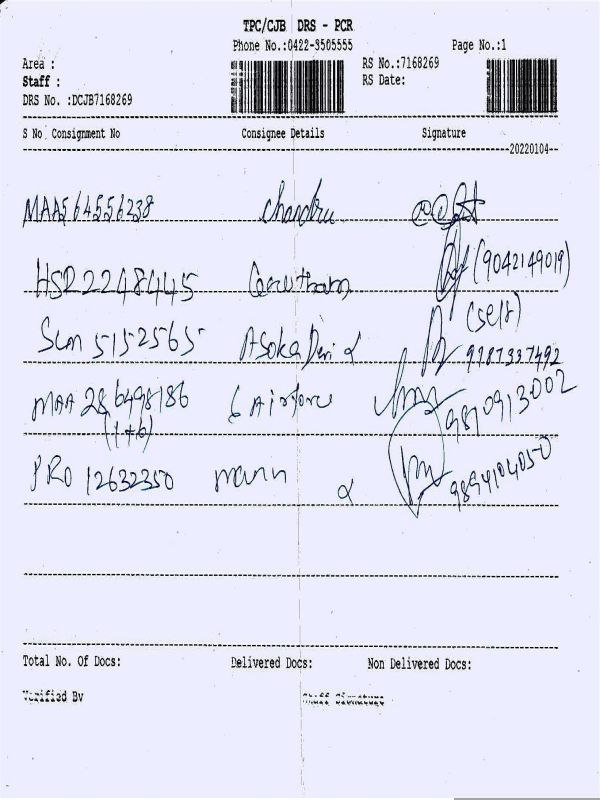 TPC/CJB DRS - PCR
Phone No.:0422-3505555 Page No.:1
Area : RS No.:7168269
Staff : RS Date:
DRS No. :DCJB7168269
S No Consignment No Consignee Details Signature
20220104
MAA564556238 Chandru
HSR2248445 Gowtham (9042149019)
(self)
Scm 5152565 Asoka Devi 9787337492
MAA 286498186 Airforce 9810913002
(1+6)
PRO 12632350 9894104050
Total No. Of Docs: Delivered Docs: Non Delivered Docs:
Verified By Staff Signature